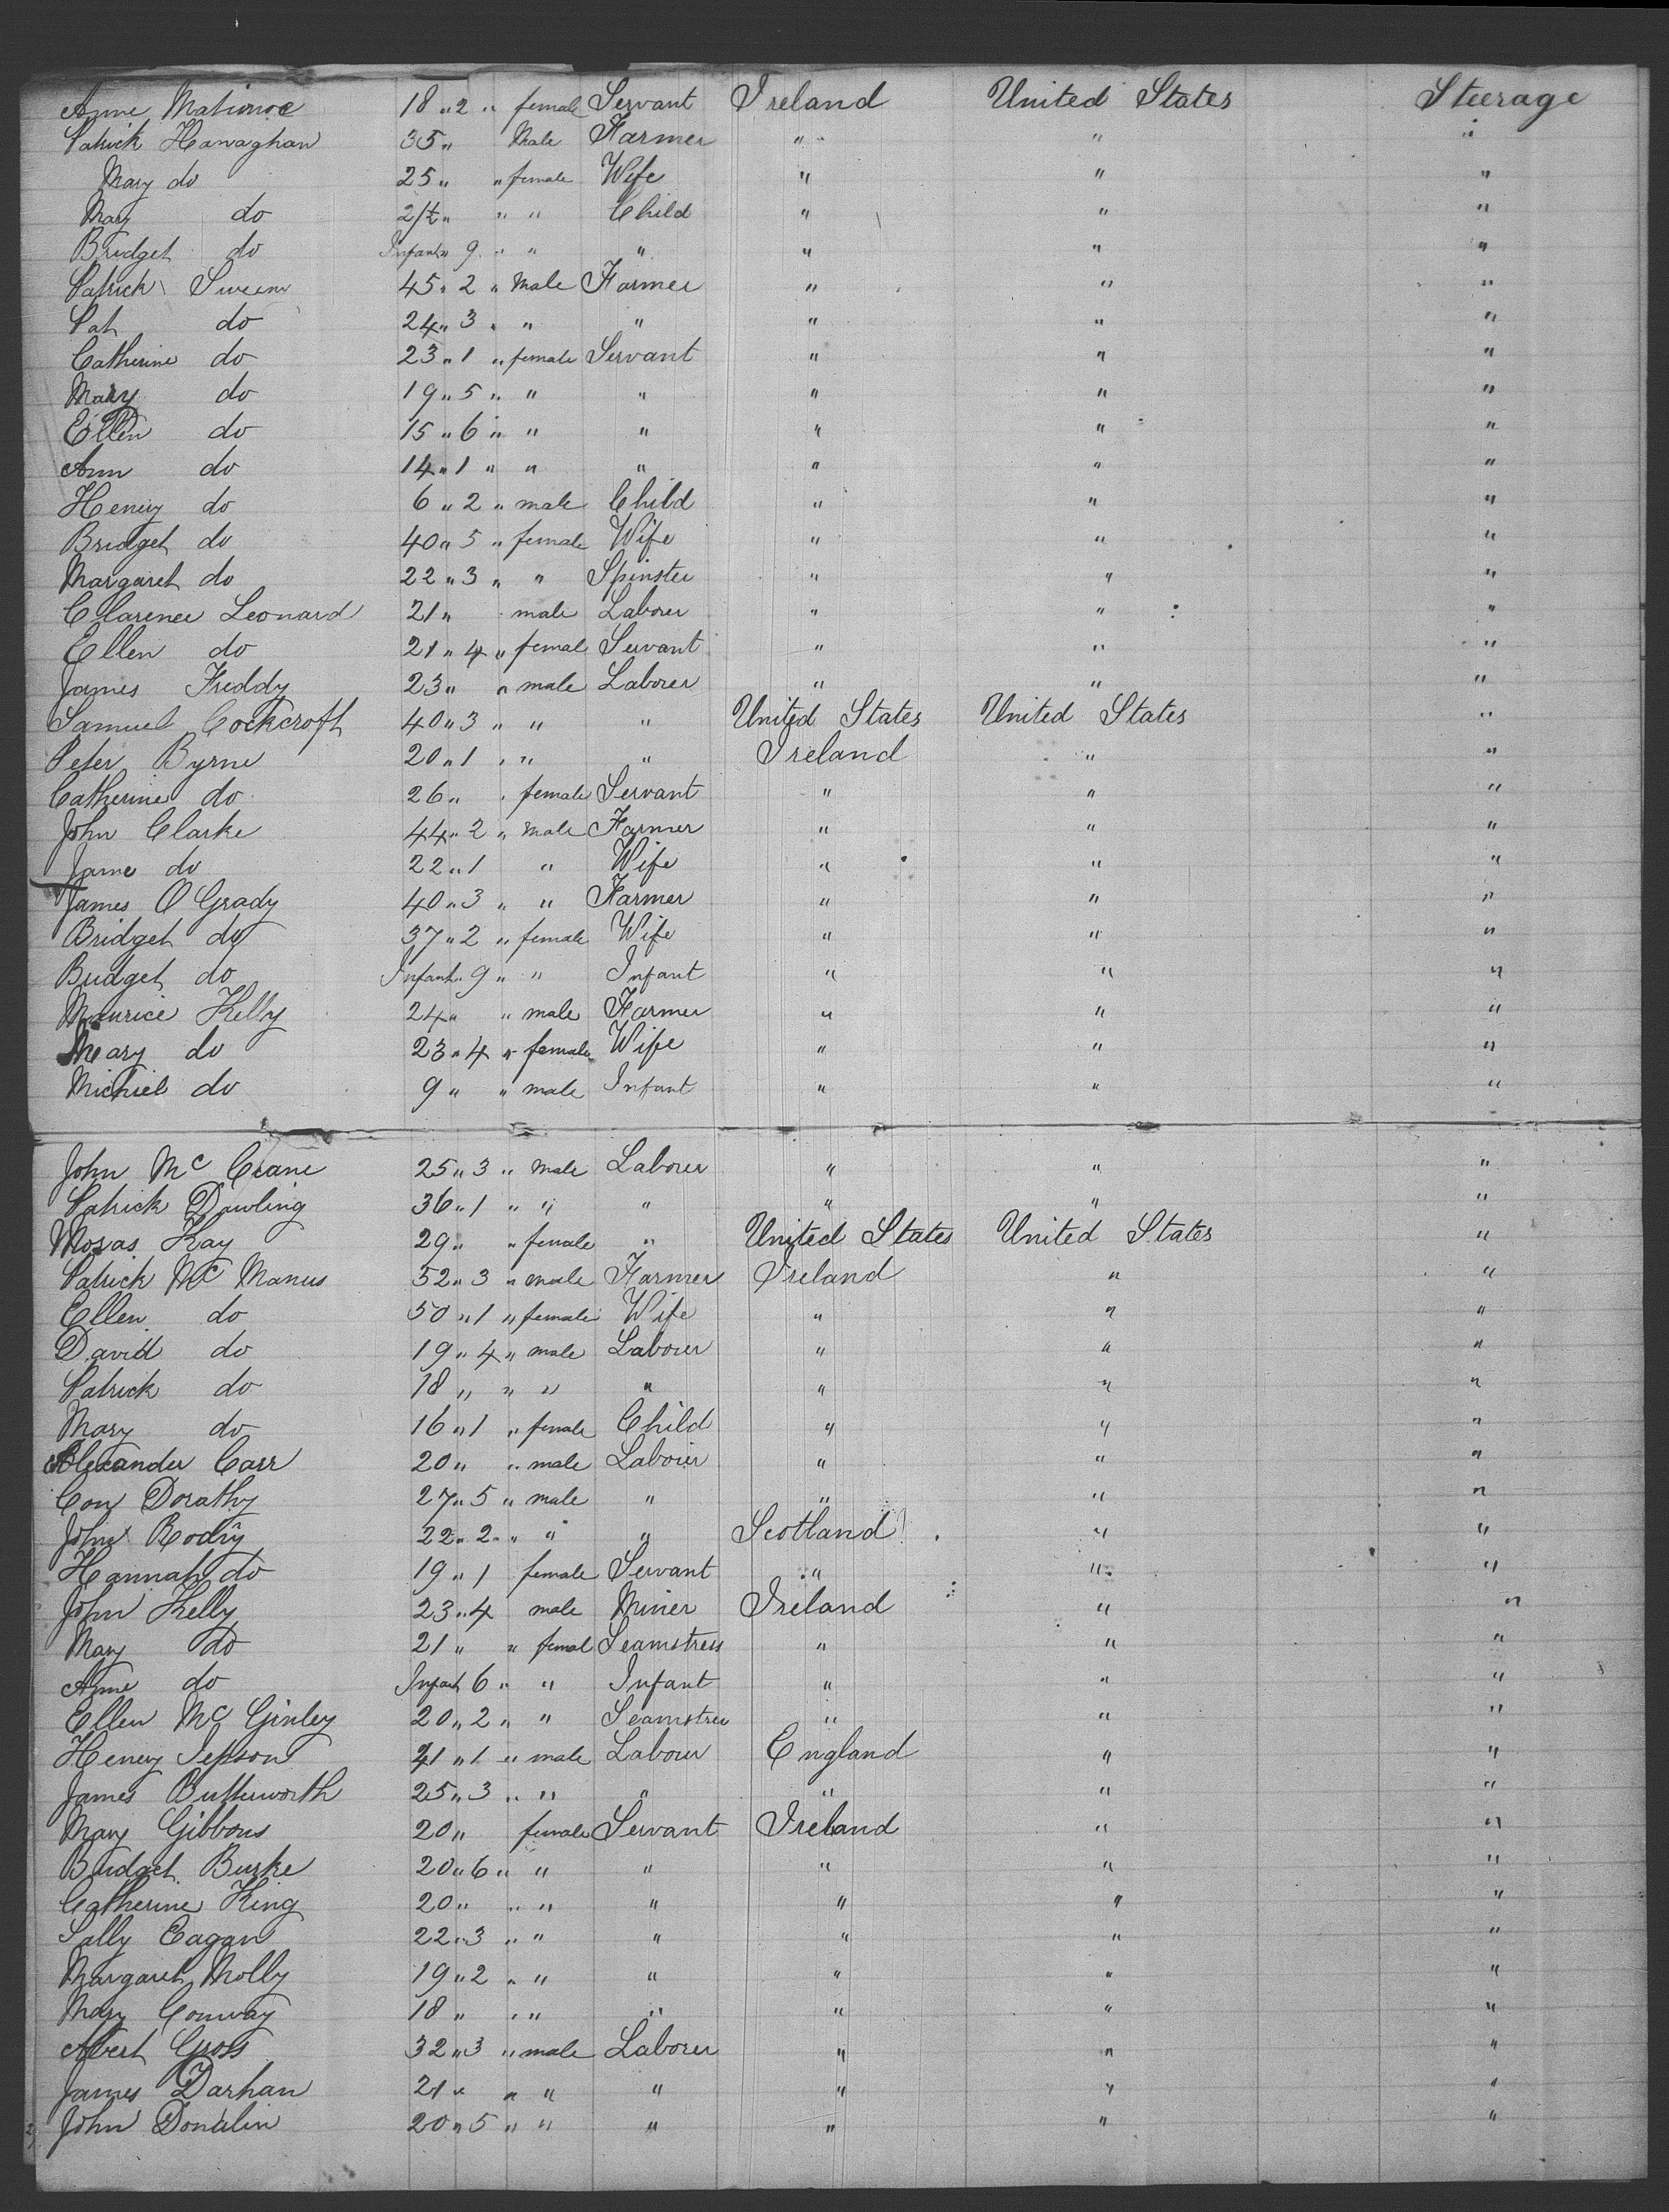 Anne 18 " 2 " female Servant Ireland United States Steerage
Patrick Hanaghan 35 " Male Farmer " " "
Mary do 25 " " female Wife " " "
Mary do 2/t " " " Child " " "
Bridget do Infant " 9 " " " " " "
Patrick 45 " 2 " Male Farmer " " "
Pat do 24 " 3 " " " " " "
Catherine do 23 " 1 " female Servant " " "
Mary do 19 " 5 " " " " " "
Ellen do 15 " 6 " " " " " "
Ann do 14 " 1 " " " " " "
Henry do 6 " 2 " male Child " " "
Bridget do 40 " 5 " female Wife " " "
Margaret do 22 " 3 " " Spinster " " "
Clarence Leonard 21 " male Laborer " " "
Ellen do 21 " 4 " female Servant " " "
James Freddy 23 " " male Laborer " " "
Samuel Cockcroft 40 " 3 " " " United States United States "
Peter Byrne 20 " 1 " " " Ireland " "
Catherine do 26 " " female Servant " " "
John Clarke 44 " 2 " Male Farmer " " "
Jane do 22 " 1 " Wife " " "
James O Grady 40 " 3 " " Farmer " " "
Bridget do 37 " 2 " female Wife " " "
Bridget do Infant " 9 " " Infant " " "
Maurice Kelly 24 " " male Farmer " " "
Mary do 23 " 4 " female Wife " " "
Michiel do 9 " " male Infant " " "
John Mc Crane 25 " 3 " Male Laborer " " "
Patrick Dowling 36 " 1 " " " " " "
Mosas Kay 29 " " female " United States United States "
Patrick Mc Manus 52 " 3 " male Farmer Ireland " "
Ellen do 50 " 1 " female Wife " " "
David do 19 " 4 " male Laborer " " "
Patrick do 18 " " " " " " "
Mary do 16 " 1 " female Child " " "
Alexander Carr 20 " " male Laborer " " "
Con Dorathy 27 " 5 " male " " " "
John Rody 22 " 2 " " " Scotland " "
Hannah do 19 " 1 female Servant " " "
John Kelly 23 " 4 male Miner Ireland " "
Mary do 21 " " femal Seamstress " " "
Anne do Infant 6 " " Infant " " "
Ellen Mc Ginley 20 " 2 " " Seamstress " " "
Henry Jepson 41 " 1 " male Labour England " "
James Butterworth 25 " 3 " " " " " "
Mary Gibbons 20 " female Servant Ireland " "
Bridget Burke 20 " 6 " " " " " "
Catherine King 20 " " " " " " "
Sally Eagan 22 " 3 " " " " " "
Margaret Molly 19 " 2 " " " " " "
Mary Conway 18 " " " " " " "
Albert Gross 32 " 3 " male Laborer " " "
James Darhan 21 " " " " " " "
John Donalin 20 " 5 " " " " " "